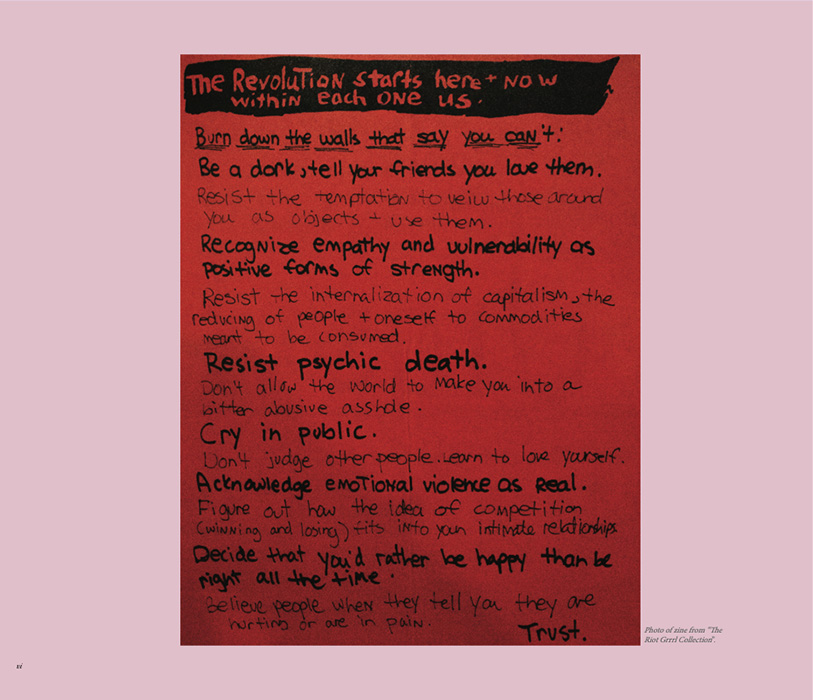 The Revolution starts here + now
within each one us.
Burn down the walls that say you can't:
Be a dork, tell your friends you love them.
Resist the temptation to veiw those around
you as objects + use them.
Recognize empathy and vulnerability as
positive forms of strength.
Resist the internalization of capitalism, the
reducing of people + oneself to commodities
meant to be consumed.
Resist psychic death.
Don't allow the world to make you into a
bitter abusive asshole.
Cry in public.
Don't judge other people. Learn to love yourself.
Acknowledge emotional violence as real.
Figure out how the idea of competition
(winning and losing) fits into your intimate relationships
Decide that you'd rather be happy than be
right all the time.
Believe people when they tell you they are
hurting or are in pain.
Trust.
Photo of zine from "The
Riot Grrrl Collection".
vi